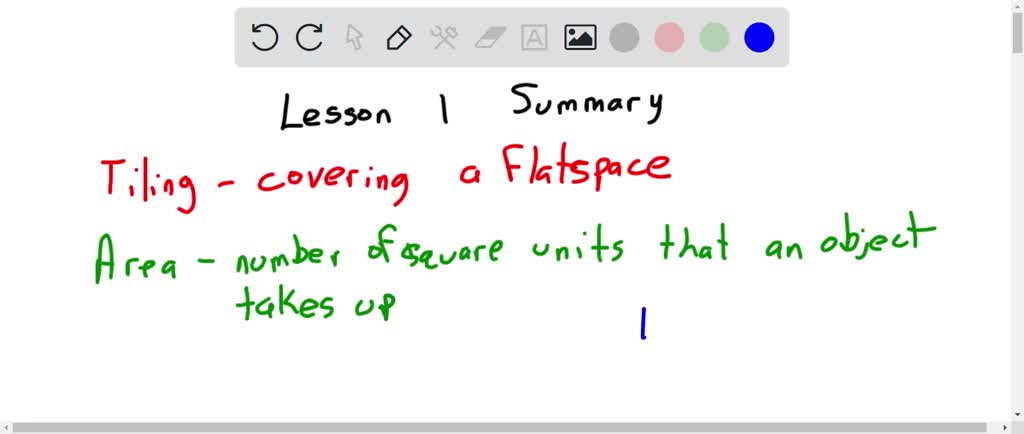 Lesson 1 Summary
Tiling - covering a Flatspace
Area - number of square units that an object
takes up